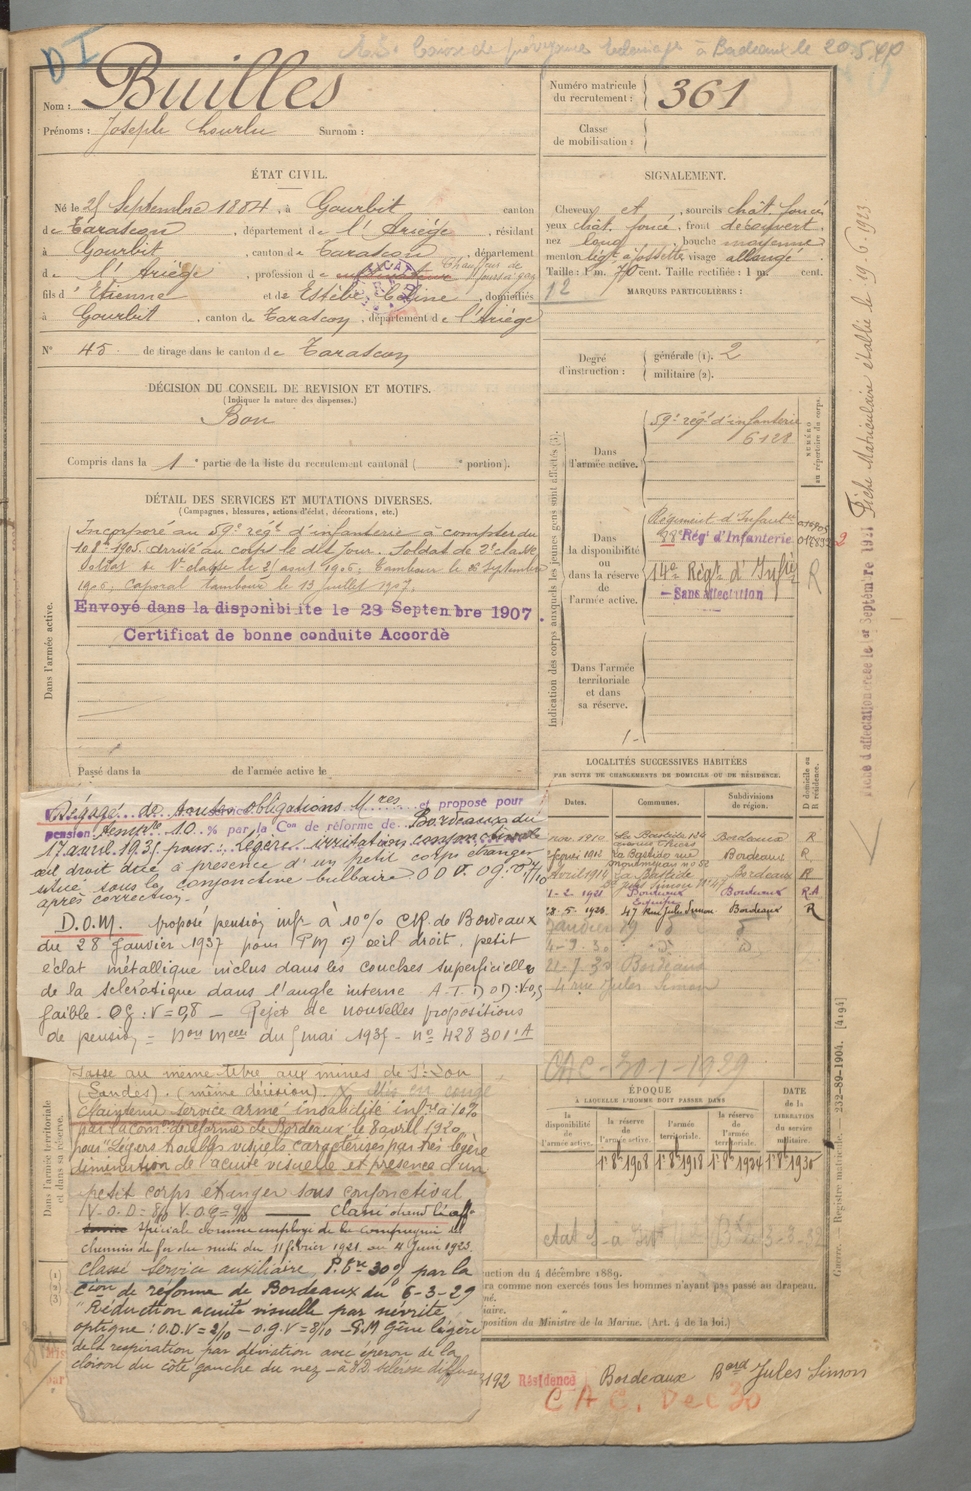 D I
à Bordeaux le 20.5.40
Nom : Builles
Prénoms : Joseph Surnom :
Numéro matricule du recrutement : 361
Classe de mobilisation :
ÉTAT CIVIL.
Né le 25 Septembre 1884, à Gourbit canton
de Tarascon, département de l'Ariège, résidant
à Gourbit, canton de Tarascon, département
de l'Ariège, profession de Chauffeur de
fils d'Etienne et de Estèbe, domiciliés
à Gourbit, canton de Tarascon, département de l'Ariège
N° 45. de tirage dans le canton de Tarascon
SIGNALEMENT.
Cheveux et, sourcils chât. foncé
yeux chât. foncé, front découvert
nez long, bouche moyenne
menton à fossette, visage allongé
Taille : 1 m. 70 cent. Taille rectifiée : 1 m. cent.
12
MARQUES PARTICULIÈRES :
Degré d'instruction : générale (1). 2
militaire (2).
DÉCISION DU CONSEIL DE REVISION ET MOTIFS.
(Indiquer la nature des dispenses.)
Bon
Compris dans la 1e partie de la liste du recrutement cantonal ( e portion).
DÉTAIL DES SERVICES ET MUTATIONS DIVERSES.
(Campagnes, blessures, actions d'éclat, décorations, etc.)
Dans l'armée active.
Incorporé au 59e régt d'infanterie à compter du
10 8bre 1905. arrivé au corps le dit jour. Soldat de 2e classe
Soldat de 1e classe le 21 aout 1906; Tambour le Septembre
1906; Caporal tambour le 13 juillet 1907.
Envoyé dans la disponibilité le 28 Septembre 1907.
Certificat de bonne conduite Accordé
Passé dans la de l'armée active le
Indication des corps auxquels les jeunes gens sont affectés
Dans l'armée active.
59e régt d'infanterie
6128
NUMÉRO au répertoire du corps.
Dans la disponibilité ou dans la réserve de l'armée active.
Régiment d'Infantrie
Régt d'Infanterie
14e Régt d'Infie
Sans affectation
R
Dans l'armée territoriale et dans sa réserve.
Fiche Matriculaire établie le 19.6.1923
Fiche d'affectation créée le 1er Septembre 1921
LOCALITÉS SUCCESSIVES HABITÉES
PAR SUITE DE CHANGEMENTS DE DOMICILE OU DE RÉSIDENCE.
Dates. Communes. Subdivisions de région. D domicile ou R résidence.
nov. 1910 La Bastide Bordeaux R
1912 La Bastide rue Bordeaux R
Avril 1914 La Bastide Bordeaux R
1-2-1921 Bordeaux Bordeaux RA
28-5-1923 47 Rue Jules Simon Bordeaux R
Bordeaux
rue Jules Simon
CAC - 30-1-1929
Dégagé de toutes obligations Mres et proposé pour
pension temp. 10 % par la Con de réforme de Bordeaux du
17 avril 1935 pour : légère irritation conjonctivale
œil droit due à présence d'un petit corps étranger
situé sous la conjonctive bulbaire
après correction.
D.O.M. proposé pension infr à 10% C.R. de Bordeaux
du 28 Janvier 1937 pour PM œil droit. petit
éclat métallique inclus dans les couches superficielles
de la sclérotique dans l'angle interne
faible. OG : V = 0,8 - Rejet de nouvelles propositions
de pension = du 5 mai 1937 - n° 428301 A
Dans l'armée territoriale et dans sa réserve.
Passé au même titre aux mines de St Lon
(Landes). (même décision). Mis en congé
Maintenu service armé invalidité infre à 10%
par la com. de réforme de Bordeaux le 8 avril 1920
pour "Légers troubles visuels caractérisés par très légère
diminution de l'acuité visuelle et présence d'un
petit corps étranger sous conjonctival
V.O.D = 8/10 V.O.G = 9/10 Classé dans l'aff.
spéciale comme employé de la Compagnie des
chemins de fer du midi du 11 février 1921 au 4 Juin 1923.
Classé Service auxiliaire P. 30% par la
Cion de réforme de Bordeaux du 6-3-29
"Réduction acuité visuelle par névrite
optique : O.D.V = 2/10 - O.G.V = 8/10 - P.M Gêne légère
de la respiration par déviation avec éperon de la
cloison du côté gauche du nez - sclérose diffuse
ÉPOQUE
À LAQUELLE L'HOMME DOIT PASSER DANS
la disponibilité de l'armée active. la réserve de l'armée active. l'armée territoriale. la réserve de l'armée territoriale.
DATE de la LIBÉRATION du service militaire.
1er 8bre 1908 1er 8bre 1918 1er 8bre 1924 1er 8bre 1930
uction du 4 décembre 1889.
ra comme non exercés tous les hommes n'ayant pas passé au drapeau.
position du Ministre de la Marine. (Art. 4 de la loi.)
Guerre. — Registre matricule. 232-89-1904. [4194]
192 Résidence Bordeaux Bard Jules Simon
C A C. Dec 30